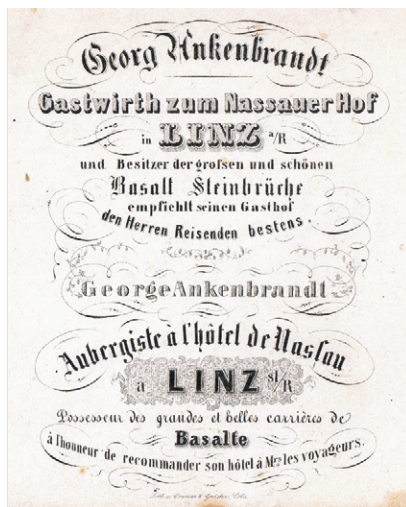 Georg Ankenbrandt
Gastwirth zum Nassauer Hof
in LINZ a/R
und Besitzer der grofsen und schönen
Basalt Steinbrüche
empfiehlt seinen Gasthof
den Herren Reisenden bestens.
George Ankenbrandt
Aubergiste à l'hôtel de Nassau
a LINZ sl/R
Possesseur des grandes et belles carrières de
Basalte
à l'honneur de recommander son hôtel à Mrs les voyageurs.